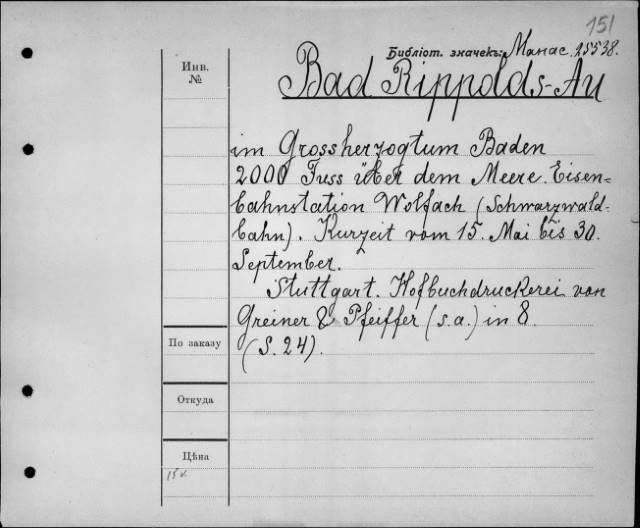 151
Библіот. значекъ: Манас. 25538.
Инв.
№
Bad Rippolds-Au
im Grossherzogtum Baden
2000 Fuss über dem Meere. Eisen=
bahnstation Wolfach (Schwarzwald-
bahn). Kurzeit vom 15. Mai bis 30.
September.
Stuttgart. Hofbuchdruckerei von
Greiner & Pfeiffer (s.a.) in 8.
(S. 24).
По заказу
Откуда
Цѣна
15к